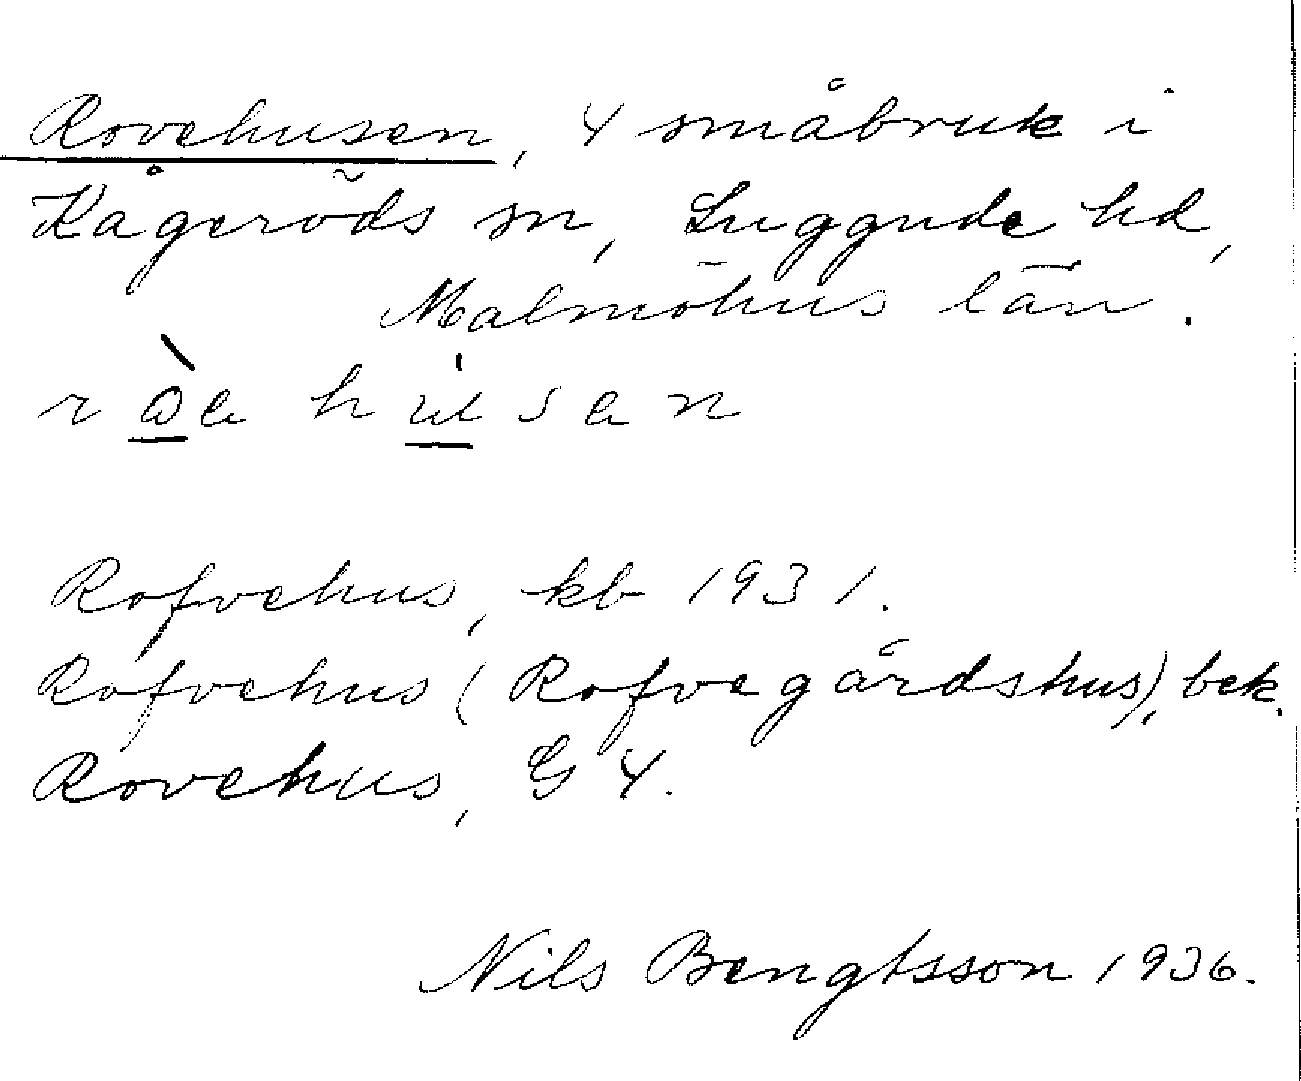 Rovehusen, 4 småbruk i
Kågeröds sn, Luggude hd,
Malmöhus län.
Rofvehus, kb 1931.
Rofvehus (Rofvegårdshus), bek.
Rovehus, G 4.
Nils Bengtsson 1936.